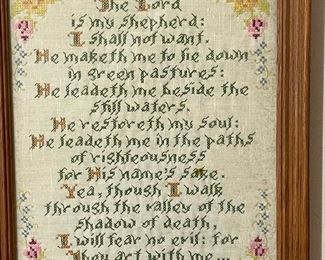 The Lord
is my shepherd:
I shall not want.
He maketh me to lie down
in green pastures:
He leadeth me beside the
still waters.
He restoreth my soul:
He leadeth me in the paths
of righteousness
for His name's sake.
Yea, though I walk
through the valley of the
shadow of death,
I will fear no evil: for
Thou art with me...